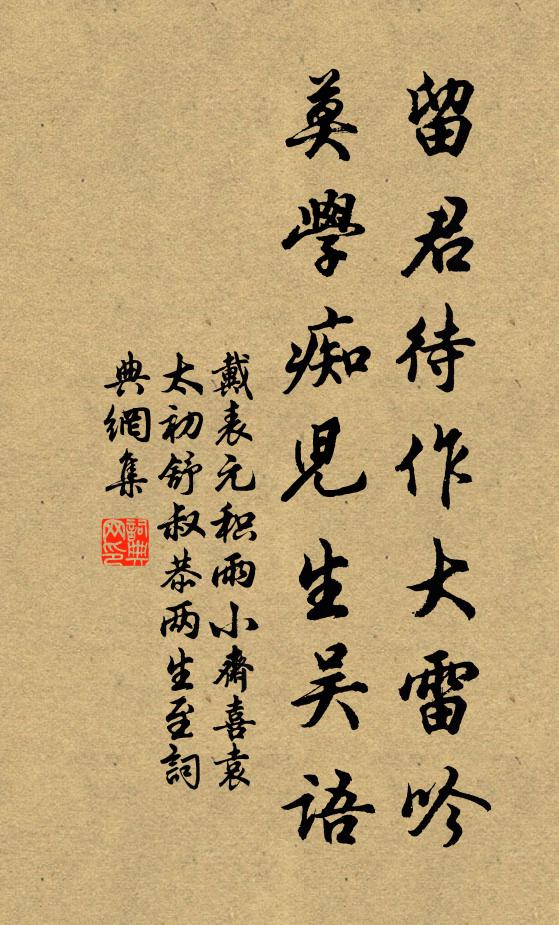 留君待作大雷吟
莫學痴児生吴语
戴表元积雨小齋喜袁
太初舒叔恭两生至詞
典網集
詞典
网印